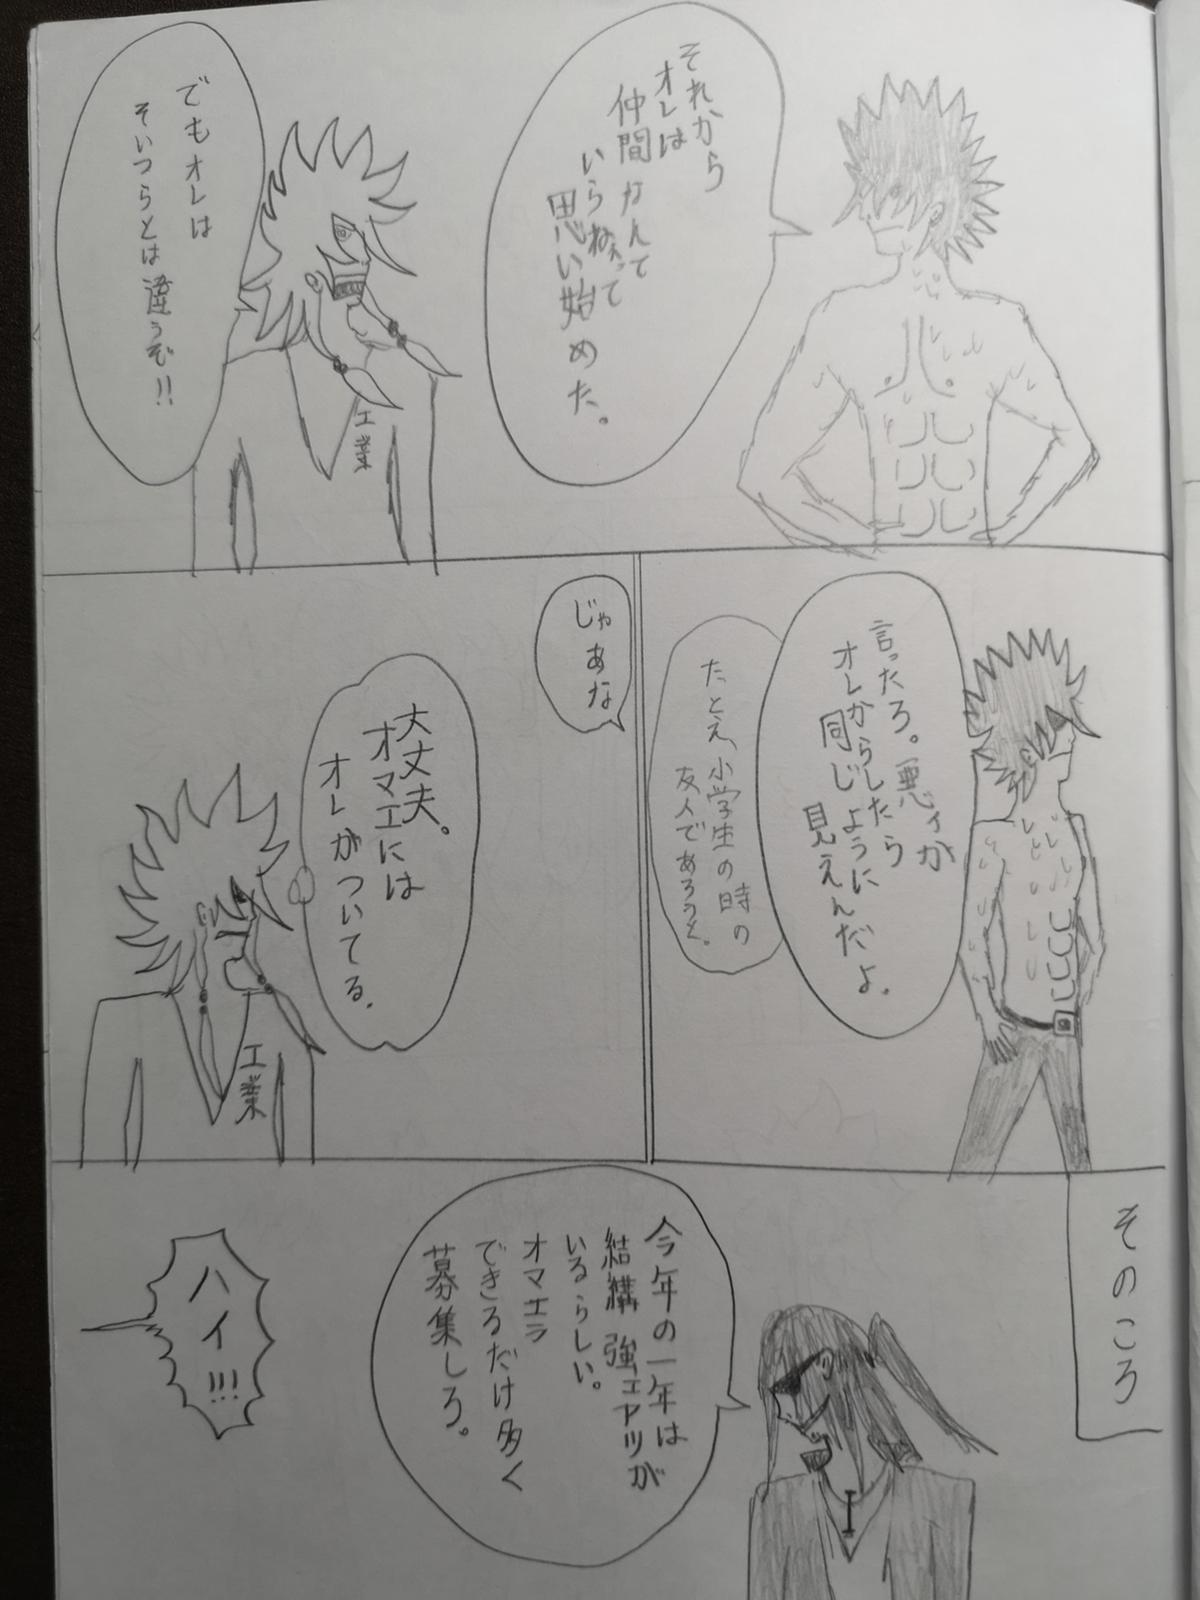 それから
オレは
仲間なんて
いらねぇって
思い始めた。
でもオレは
そいつらとは違うぞ!!
工業
言ったろ。悪ィが
オレからしたら
同じように
見えんだよ。
たとえ、小学生の時の
友人であろうと。
じゃあな
大丈夫。
オマエには
オレがついてる。
工業
そのころ
今年の一年は
結構強ェヤツが
いるらしい。
オマエラ
できるだけ多く
募集しろ。
ハイ!!!